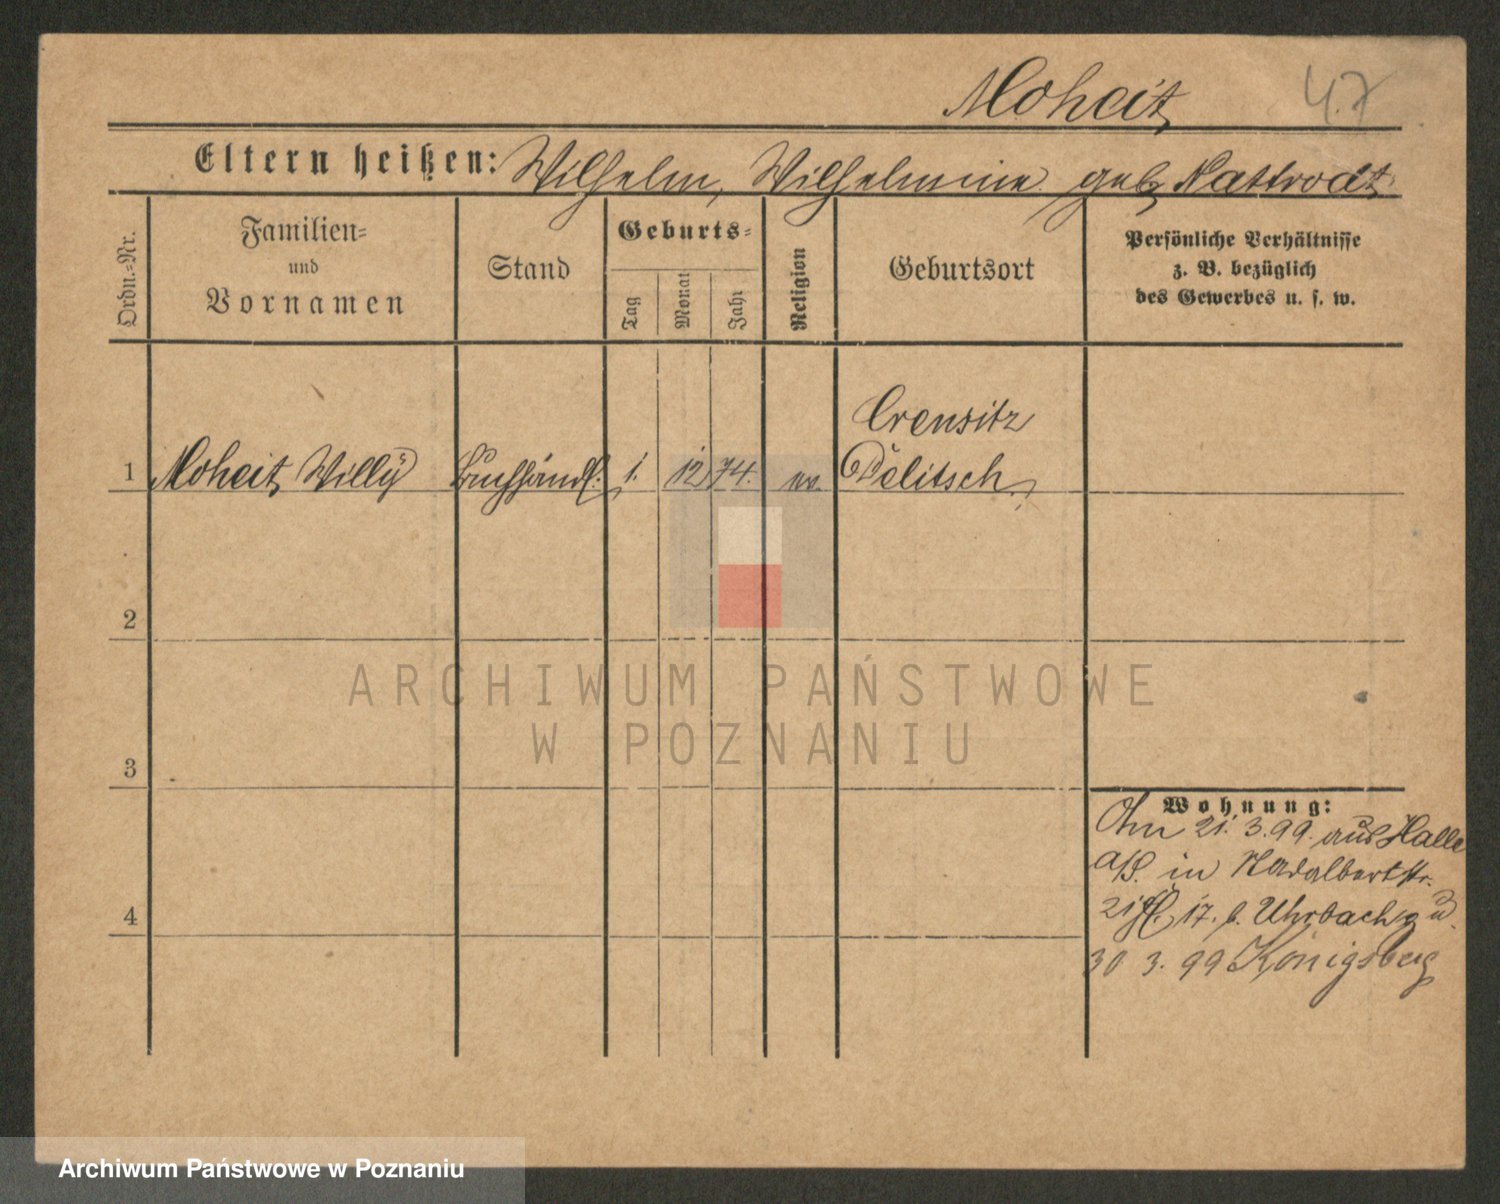 Moheit 47
Eltern heißen: Wilhelm, Wilhelmine geb. Nattrodt
Ordn.-Nr.
Familien-
und
Vornamen
Stand
Geburts-
Tag
Monat
Jahr
Religion
Geburtsort
Persönliche Verhältnisse
z. B. bezüglich
des Gewerbes u. s. w.
Crensitz
1 Moheit Willy Buchhändl. 1. 12. 74. ev. Delitsch
2
ARCHIWUM PAŃSTWOWE
W POZNANIU
3
Wohnung:
Am 21. 3. 99. aus Halle
a/S. in Nadalbertstr.
21 17. b. Uhrbach u.
4
30 3. 99 Königsberg
Archiwum Państwowe w Poznaniu